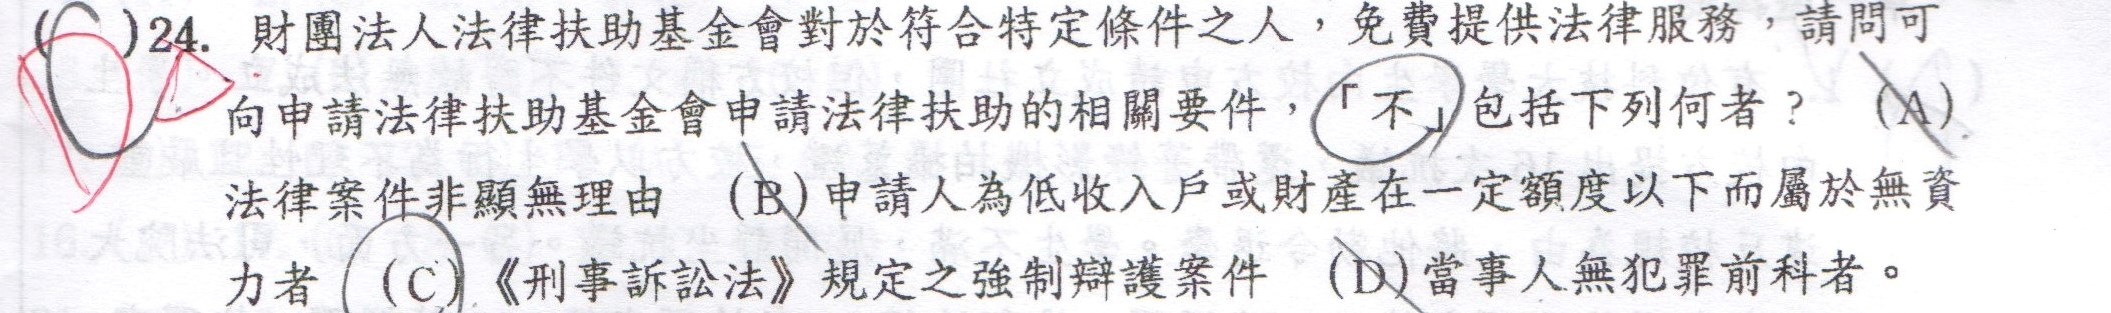 (C)24. 財團法人法律扶助基金會對於符合特定條件之人，免費提供法律服務，請問可
向申請法律扶助基金會申請法律扶助的相關要件，「不」包括下列何者？ (A)
法律案件非顯無理由 (B)申請人為低收入戶或財產在一定額度以下而屬於無資
力者 (C)《刑事訴訟法》規定之強制辯護案件 (D)當事人無犯罪前科者。